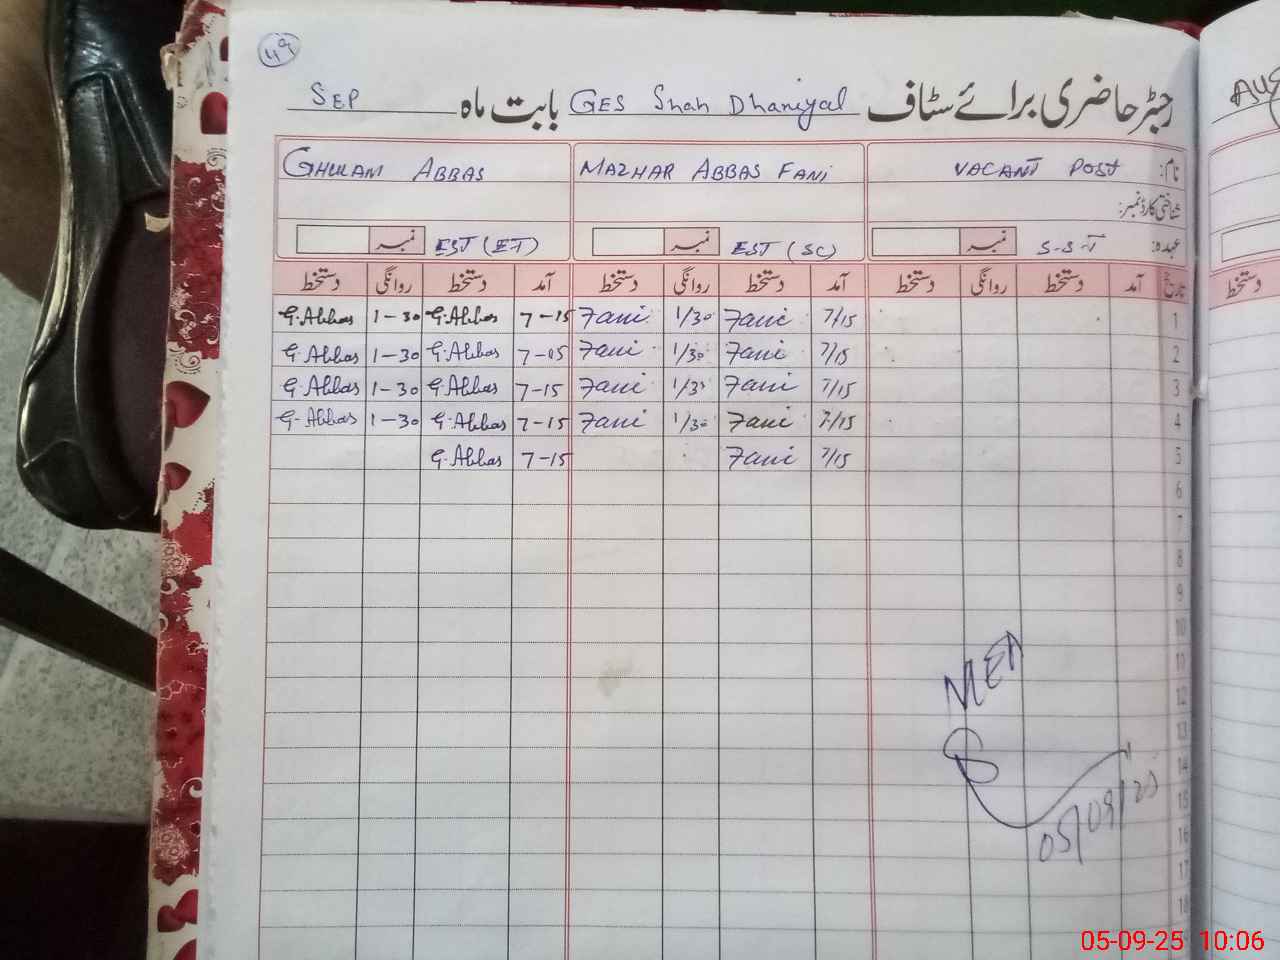 49
رجسٹر حاضری برائے سٹاف GES Shah Dhaniyal بابت ماہ SEP
نام: VACANT POST MAZHAR ABBAS FANI GHULAM ABBAS
شناختی کارڈ نمبر:
عہدہ: S-S-T نمبر EST (SC) نمبر EST (ET) نمبر
تاریخ آمد دستخط روانگی دستخط آمد دستخط روانگی دستخط آمد دستخط روانگی دستخط
1 7/15 Fani 1/30 Fani 7-15 G.Abbas 1-30 G.Abbas
2 7/15 Fani 1/30 Fani 7-15 G.Abbas 1-30 G.Abbas
3 7/15 Fani 1/30 Fani 7-15 G.Abbas 1-30 G.Abbas
4 7/15 Fani 1/30 Fani 7-15 G.Abbas 1-30 G.Abbas
5 7/15 Fani 7-15 G.Abbas
6
7
8
9
10
11
12
13
14
15
16
17
18
MEA
05/09/25
Aug
دستخط
05-09-25 10:06